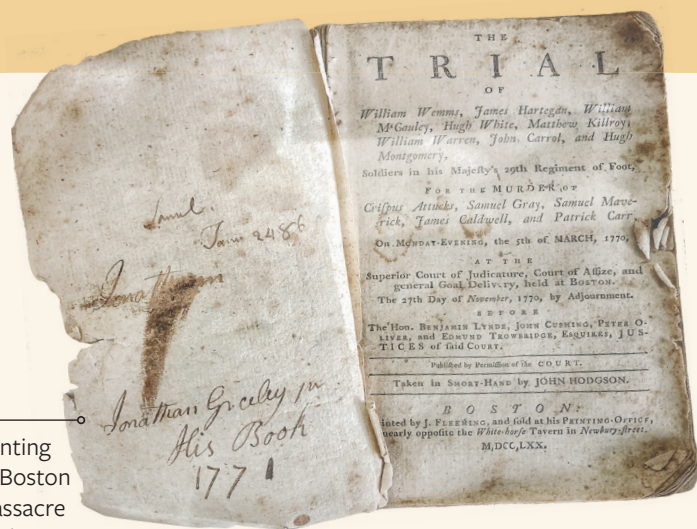 Samuel.
Jonathan
Jonathan Greeley jr
His Book
1771
THE
TRIAL
OF
William Wemms, James Hartegan, William
McCauley, Hugh White, Matthew Killroy,
William Warren, John Carrol, and Hugh
Montgomery,
Soldiers in his Majesty's 29th Regiment of Foot,
FOR THE MURDER OF
Crispus Attucks, Samuel Gray, Samuel Mave-
rick, James Caldwell, and Patrick Carr,
On MONDAY-EVENING, the 5th of MARCH, 1770,
AT THE
Superior Court of Judicature, Court of Assize, and
general Goal Delivery, held at BOSTON.
The 27th Day of November, 1770, by Adjournment.
BEFORE
The Hon. BENJAMIN LYNDE, JOHN CUSHING, PETER O-
LIVER, and EDMUND TROWBRIDGE, ESQUIRES, JUS-
TICES of said COURT.
Published by Permission of the COURT.
Taken in SHORT-HAND by JOHN HODGSON.
BOSTON:
inted by J. FLEEMING, and sold at his PRINTING-OFFICE,
nearly opposite the White-horse Tavern in Newbury-street.
M,DCC,LXX.
nting
Boston
assacre